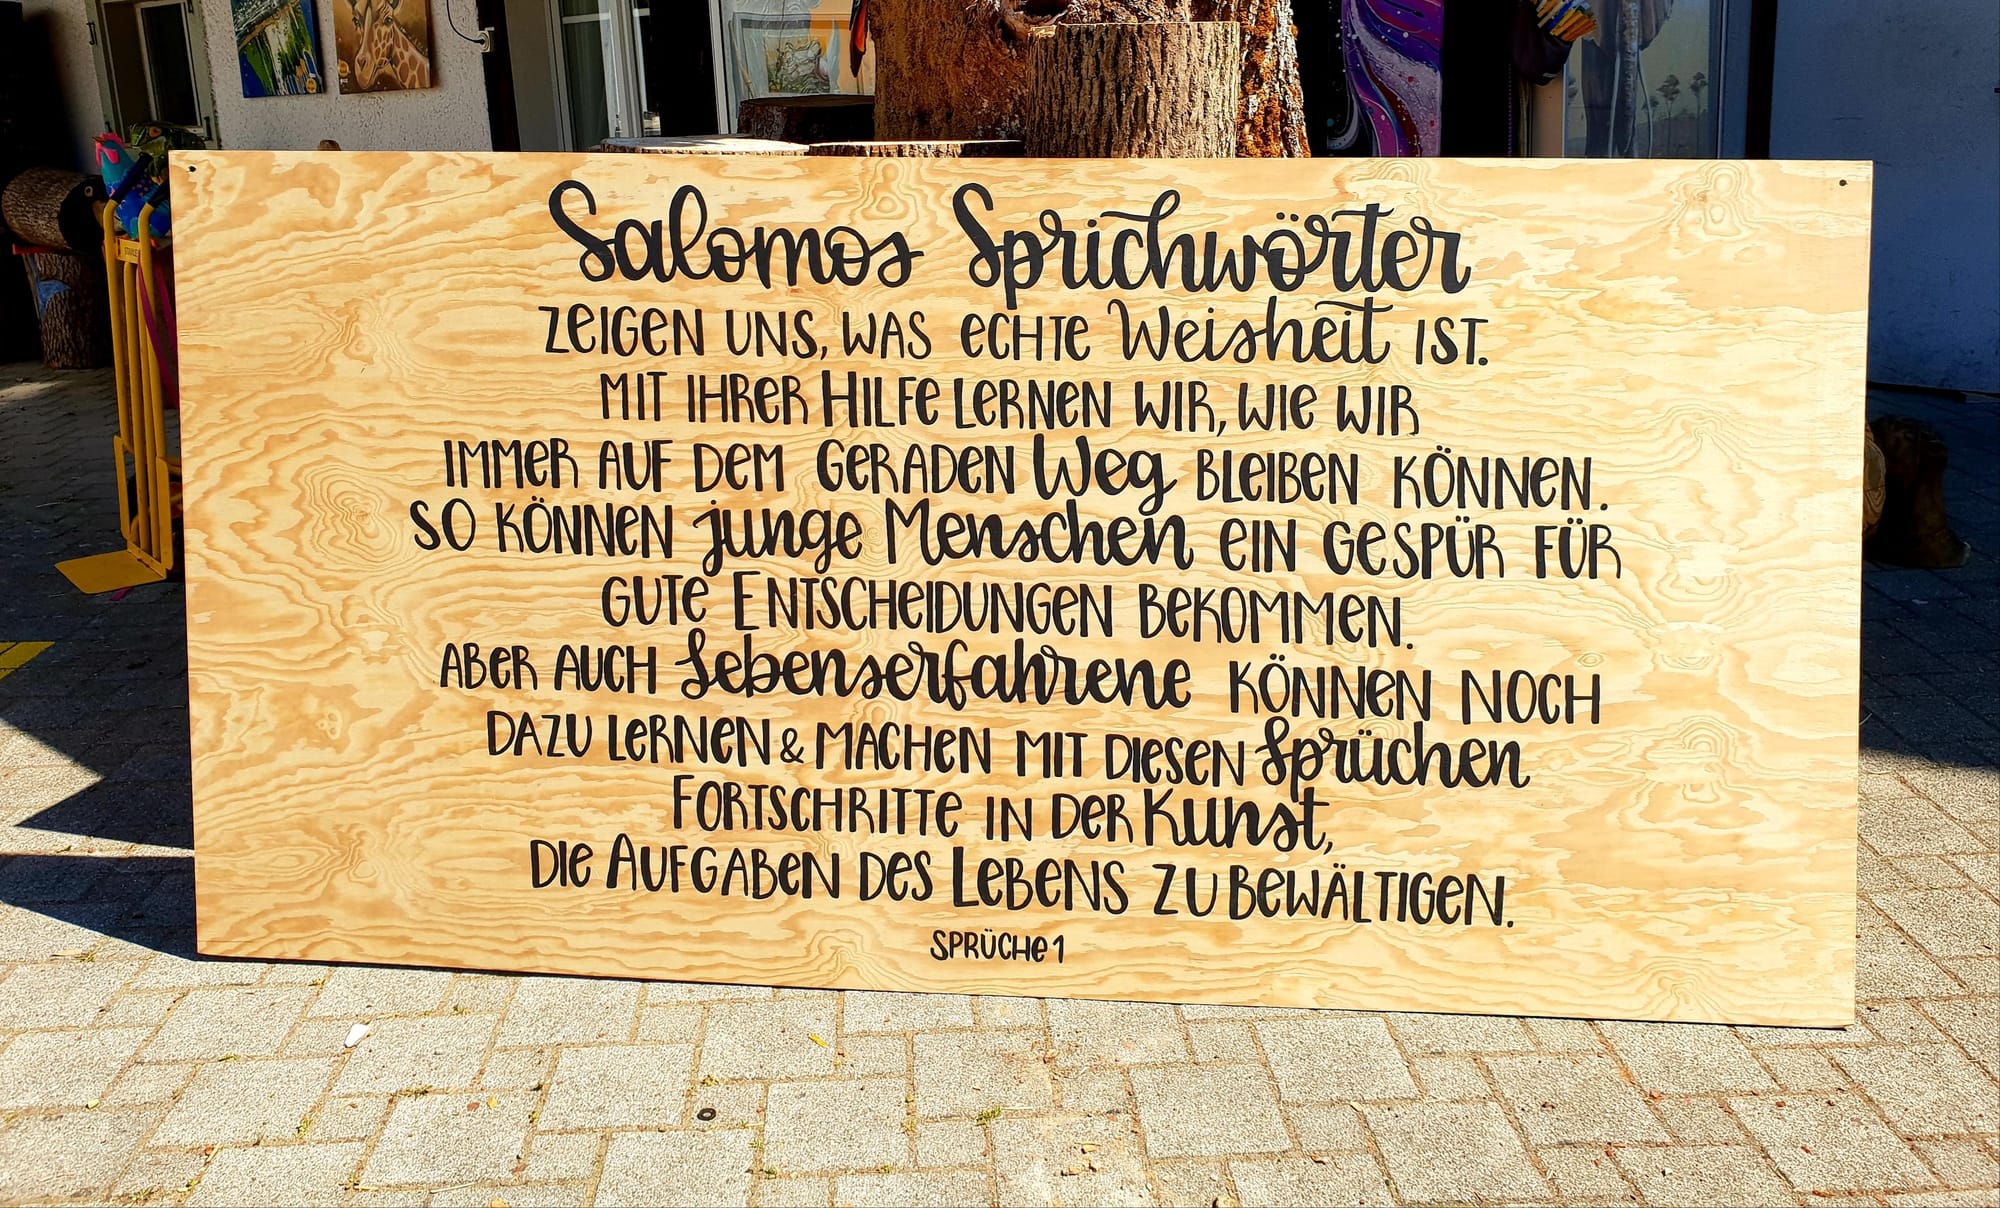 Salomos Sprichwörter
ZEIGEN UNS, WAS ECHTE Weisheit IST.
MIT IHRER HILFE LERNEN WIR, WIE WIR
IMMER AUF DEM GERADEN Weg BLEIBEN KÖNNEN.
SO KÖNNEN junge Menschen EIN GESPÜR FÜR
GUTE ENTSCHEIDUNGEN BEKOMMEN.
ABER AUCH Lebenserfahrene KÖNNEN NOCH
DAZU LERNEN & MACHEN MIT DIESEN Sprüchen
FORTSCHRITTE IN DER Kunst,
DIE AUFGABEN DES LEBENS ZU BEWÄLTIGEN.
SPRÜCHE 1